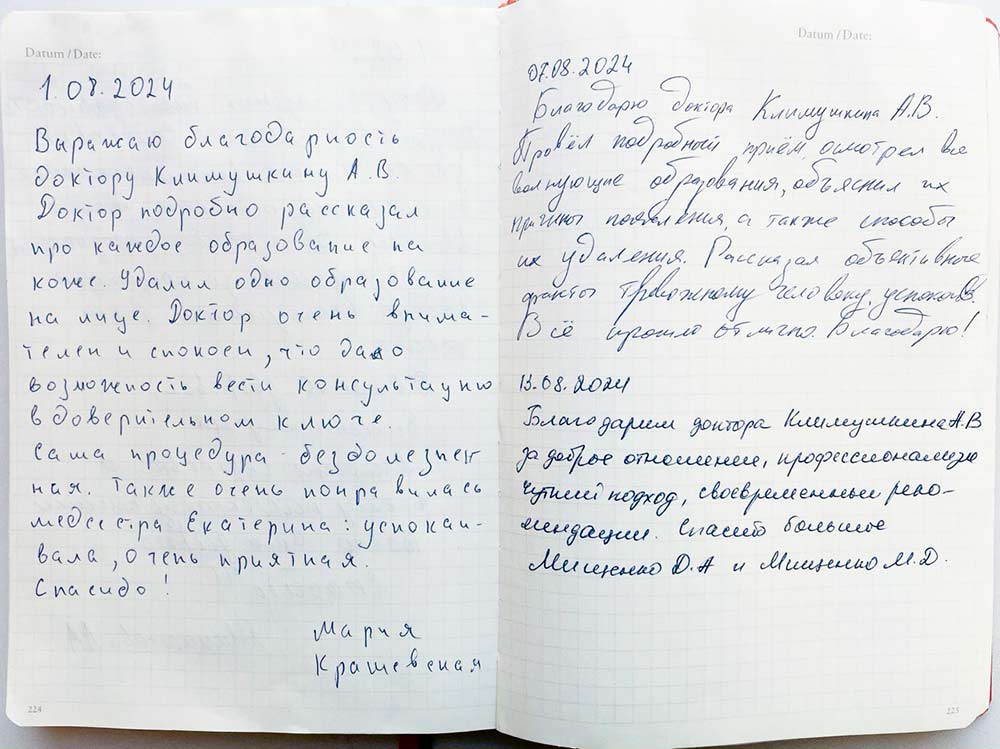 Datum / Date:
1.08.2024
Выражаю благодарность
доктору Климушкину А.В.
Доктор подробно рассказал
про каждое образование на
коже. Удалил одно образование
на лице. Доктор очень внима-
телен и спокоен, что дало
возможность вести консультацию
в доверительном ключе.
Сама процедура - безболезнен
ная. Также очень понравилась
медсестра Екатерина: успокаи-
вала, очень приятная.
Спасибо!
Мария
Крашевская
224
Datum / Date:
07.08.2024
Благодарю доктора Климушкина А.В.
Провёл подробный приём, осмотрел все
волнующие образования, объяснил их
причины появления, а также способы
их удаления. Рассказал объективные
факты тревожному человеку, успокоив.
Всё прошло отлично. Благодарю!
13.08.2024
Благодарим доктора Климушкина А.В
за доброе отношение, профессионализм
чуткий подход, своевременные реко-
мендации. Спасибо большое
Мищенко Д.А и Мищенко М.Д.
225